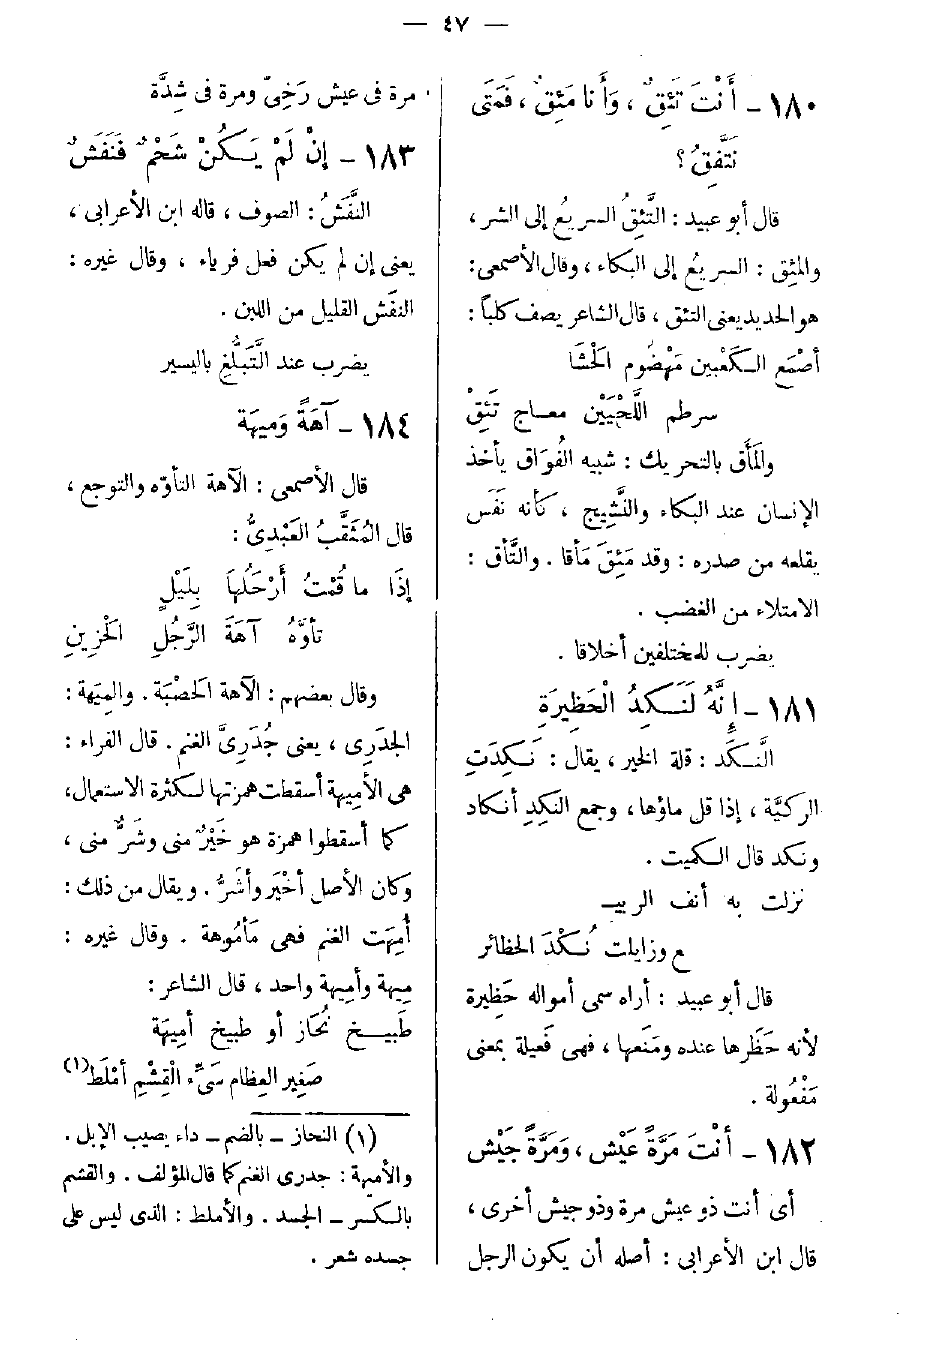 — ٤٧ —
١٨٠ - أَنْتَ تَئِقٌ ، وَأَنا مَئِقٌ ، فَمَتَى
نَتَّفِقُ ؟
قال أبو عبيد : التَّئِقُ السريعُ إلى الشر ،
والمئِق : السريعُ إلى البكاء ، وقال الأصمعى :
هو الحديد يعنى التئق ، قال الشاعر يصف كلباً :
أصْمَع الكَعْبين مَهْضُوم الحَشَا
سرطم اللَّحْيَيْن معاج تَئِقْ
والمَأَق بالتحريك : شبيه الفُوَاق يأخذ
الإنسان عند البكاء والنَّشِيج ، كأنه نَفَس
يقلعه من صدره : وقد مَئِقَ مَأقا . والتَّأق :
الامتلاء من الغضب .
يضرب للمختلفين أخلاقا .
١٨١ - إِنَّهُ لَنَكِدُ الْحَظِيرَةِ
النَّكَد : قلة الخير ، يقال : نَكِدَتِ
الركيَّة ، إذا قل ماؤها ، وجمع النكِدِ أنكاد
ونكد قال الكميت .
نزلت به أنف الربيـ
ع وزايلت نُكْدَ الحظائر
قال أبو عبيد : أراه سمى أمواله حَظِيرة
لأنه حَظَرها عنده ومَنَعها ، فهى فَعِيلة بمعنى
مَفْعُولة .
١٨٢ - أَنْتَ مَرَّةً عَيْش ، وَمَرَّةً جَيْش
أى أنت ذو عيش مرة وذو جيش أخرى ،
قال ابن الأعرابى : أصله أن يكون الرجل
مرة فى عيش رَخِىّ ومرة فى شِدَّة
١٨٣ - إنْ لَمْ يَكُنْ شَحْمٌ فَنَفَشٌ
النَّفَشُ : الصوف ، قاله ابن الأعرابى ،
يعنى إن لم يكن فعل فرياء ، وقال غيره :
النفَش القليل من اللبن .
يضرب عند التَّبَلُّغِ باليسير
١٨٤ - آهَةً وَمِيهَة
قال الأصمعى : الآهة التأوّه والتوجع ،
قال المُثَقَّبُ العَبْدِىُّ :
إِذَا ما قُمْتُ أَرْحَلُهَا بِلَيْلٍ
تأوَّهُ آهَةَ الرَّجُلِ الحَزِينِ
وقال بعضهم : الآهة الحَصْبَة . والمِيَهة :
الجدَرِى ، يعنى جُدَرِىَّ الغنم . قال الفراء :
هى الأمِيهة أسقطت همزتها لكثرة الاستعمال ،
كما أسقطوا همزة هو خَيْرٌ منى وشَرٌّ منى ،
وكان الأصل أخْيَر وأشَرُّ . ويقال من ذلك :
أُمِهَت الغنم فهى مَأمُوهة . وقال غيره :
مِيهة وأمِيهة واحد ، قال الشاعر :
طَبِيخ نُحَاز أو طبيخ أمِيهَة
صَغِير العِظام سَىِّء القِشْمِ أمْلَط(١)
(١) النحاز - بالضم - داء يصيب الإبل .
والأميهة : جدرى الغنم كما قال المؤلف . والقشم
بالكسر - الجسد . والأملط : الذى ليس على
جسده شعر .